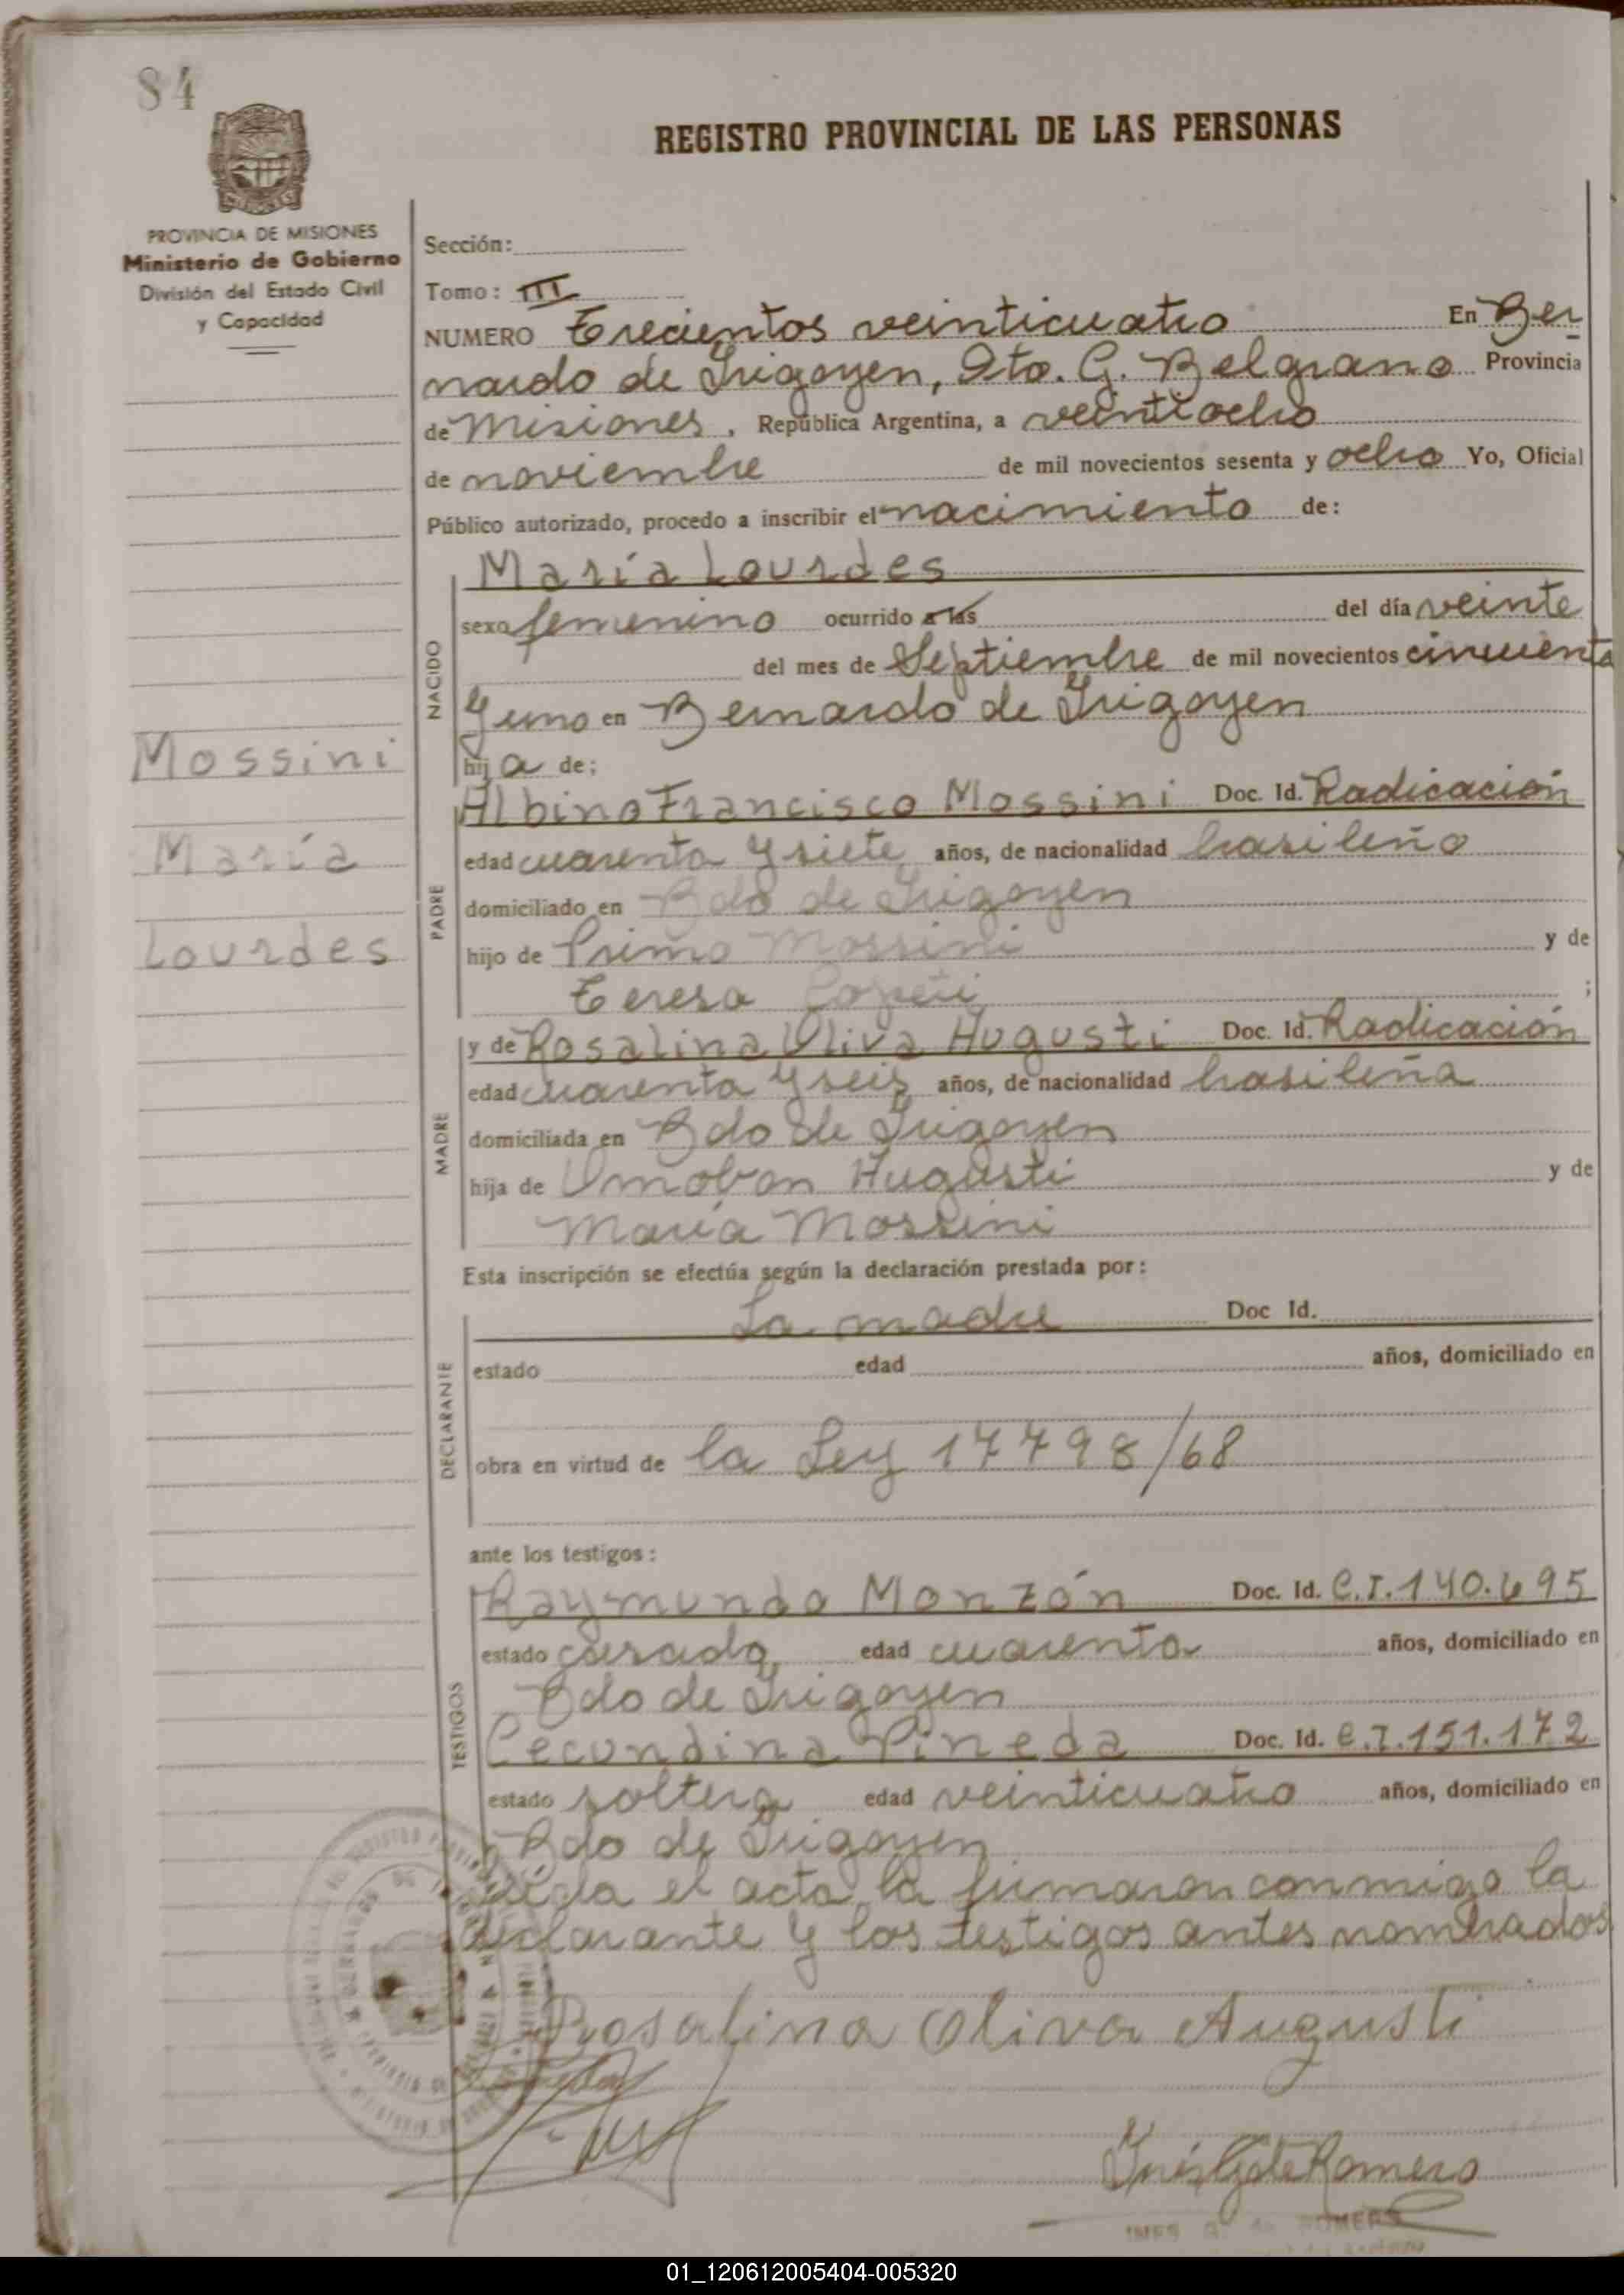 84
REGISTRO PROVINCIAL DE LAS PERSONAS
PROVINCIA DE MISIONES
Ministerio de Gobierno
División del Estado Civil
y Capacidad
Sección:
Tomo: III
NUMERO Trecientos veinticuatro En Ber
nardo de Irigoyen, Dto. G. Belgrano Provincia
de Misiones, República Argentina, a veintiocho
de noviembre de mil novecientos sesenta y ocho Yo, Oficial
Público autorizado, procedo a inscribir el nacimiento de:
NACIDO
María Lourdes
sexo femenino ocurrido a las del día veinte
del mes de Septiembre de mil novecientos cincuenta
y uno en Bernardo de Irigoyen
hija de;
Mossini
María
Lourdes
PADRE
Albino Francisco Mossini Doc. Id. Radicación
edad cuarenta y siete años, de nacionalidad brasileño
domiciliado en Bdo de Irigoyen
hijo de Primo Mossini y de
Teresa ;
MADRE
y de Rosalina Oliva Augusti Doc. Id. Radicación
edad cuarenta y seis años, de nacionalidad brasileña
domiciliada en Bdo de Irigoyen
hija de Augusti y de
María Mossini
Esta inscripción se efectúa según la declaración prestada por:
DECLARANTE
La madre Doc Id.
estado edad años, domiciliado en
obra en virtud de la Ley 17798/68
ante los testigos:
TESTIGOS
Raymundo Monzón Doc. Id. C.I. 140.695
estado casado, edad cuarenta años, domiciliado en
Bdo de Irigoyen
Cecundina Pineda Doc. Id. C.I. 151.172
estado soltera edad veinticuatro años, domiciliado en
Bdo de Irigoyen
leída el acta, la firmaron conmigo la
declarante y los testigos antes nombrados
Rosalina Oliva Augusti
Romero
INES G. de ROMERO
01_120612005404-005320